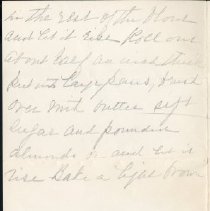 in the rest of the flour
and let it rise Roll out
about half an inch thick
Put into large pans, brush
over with butter sift
sugar and pounded
almonds on and let it
rise Bake a light brown